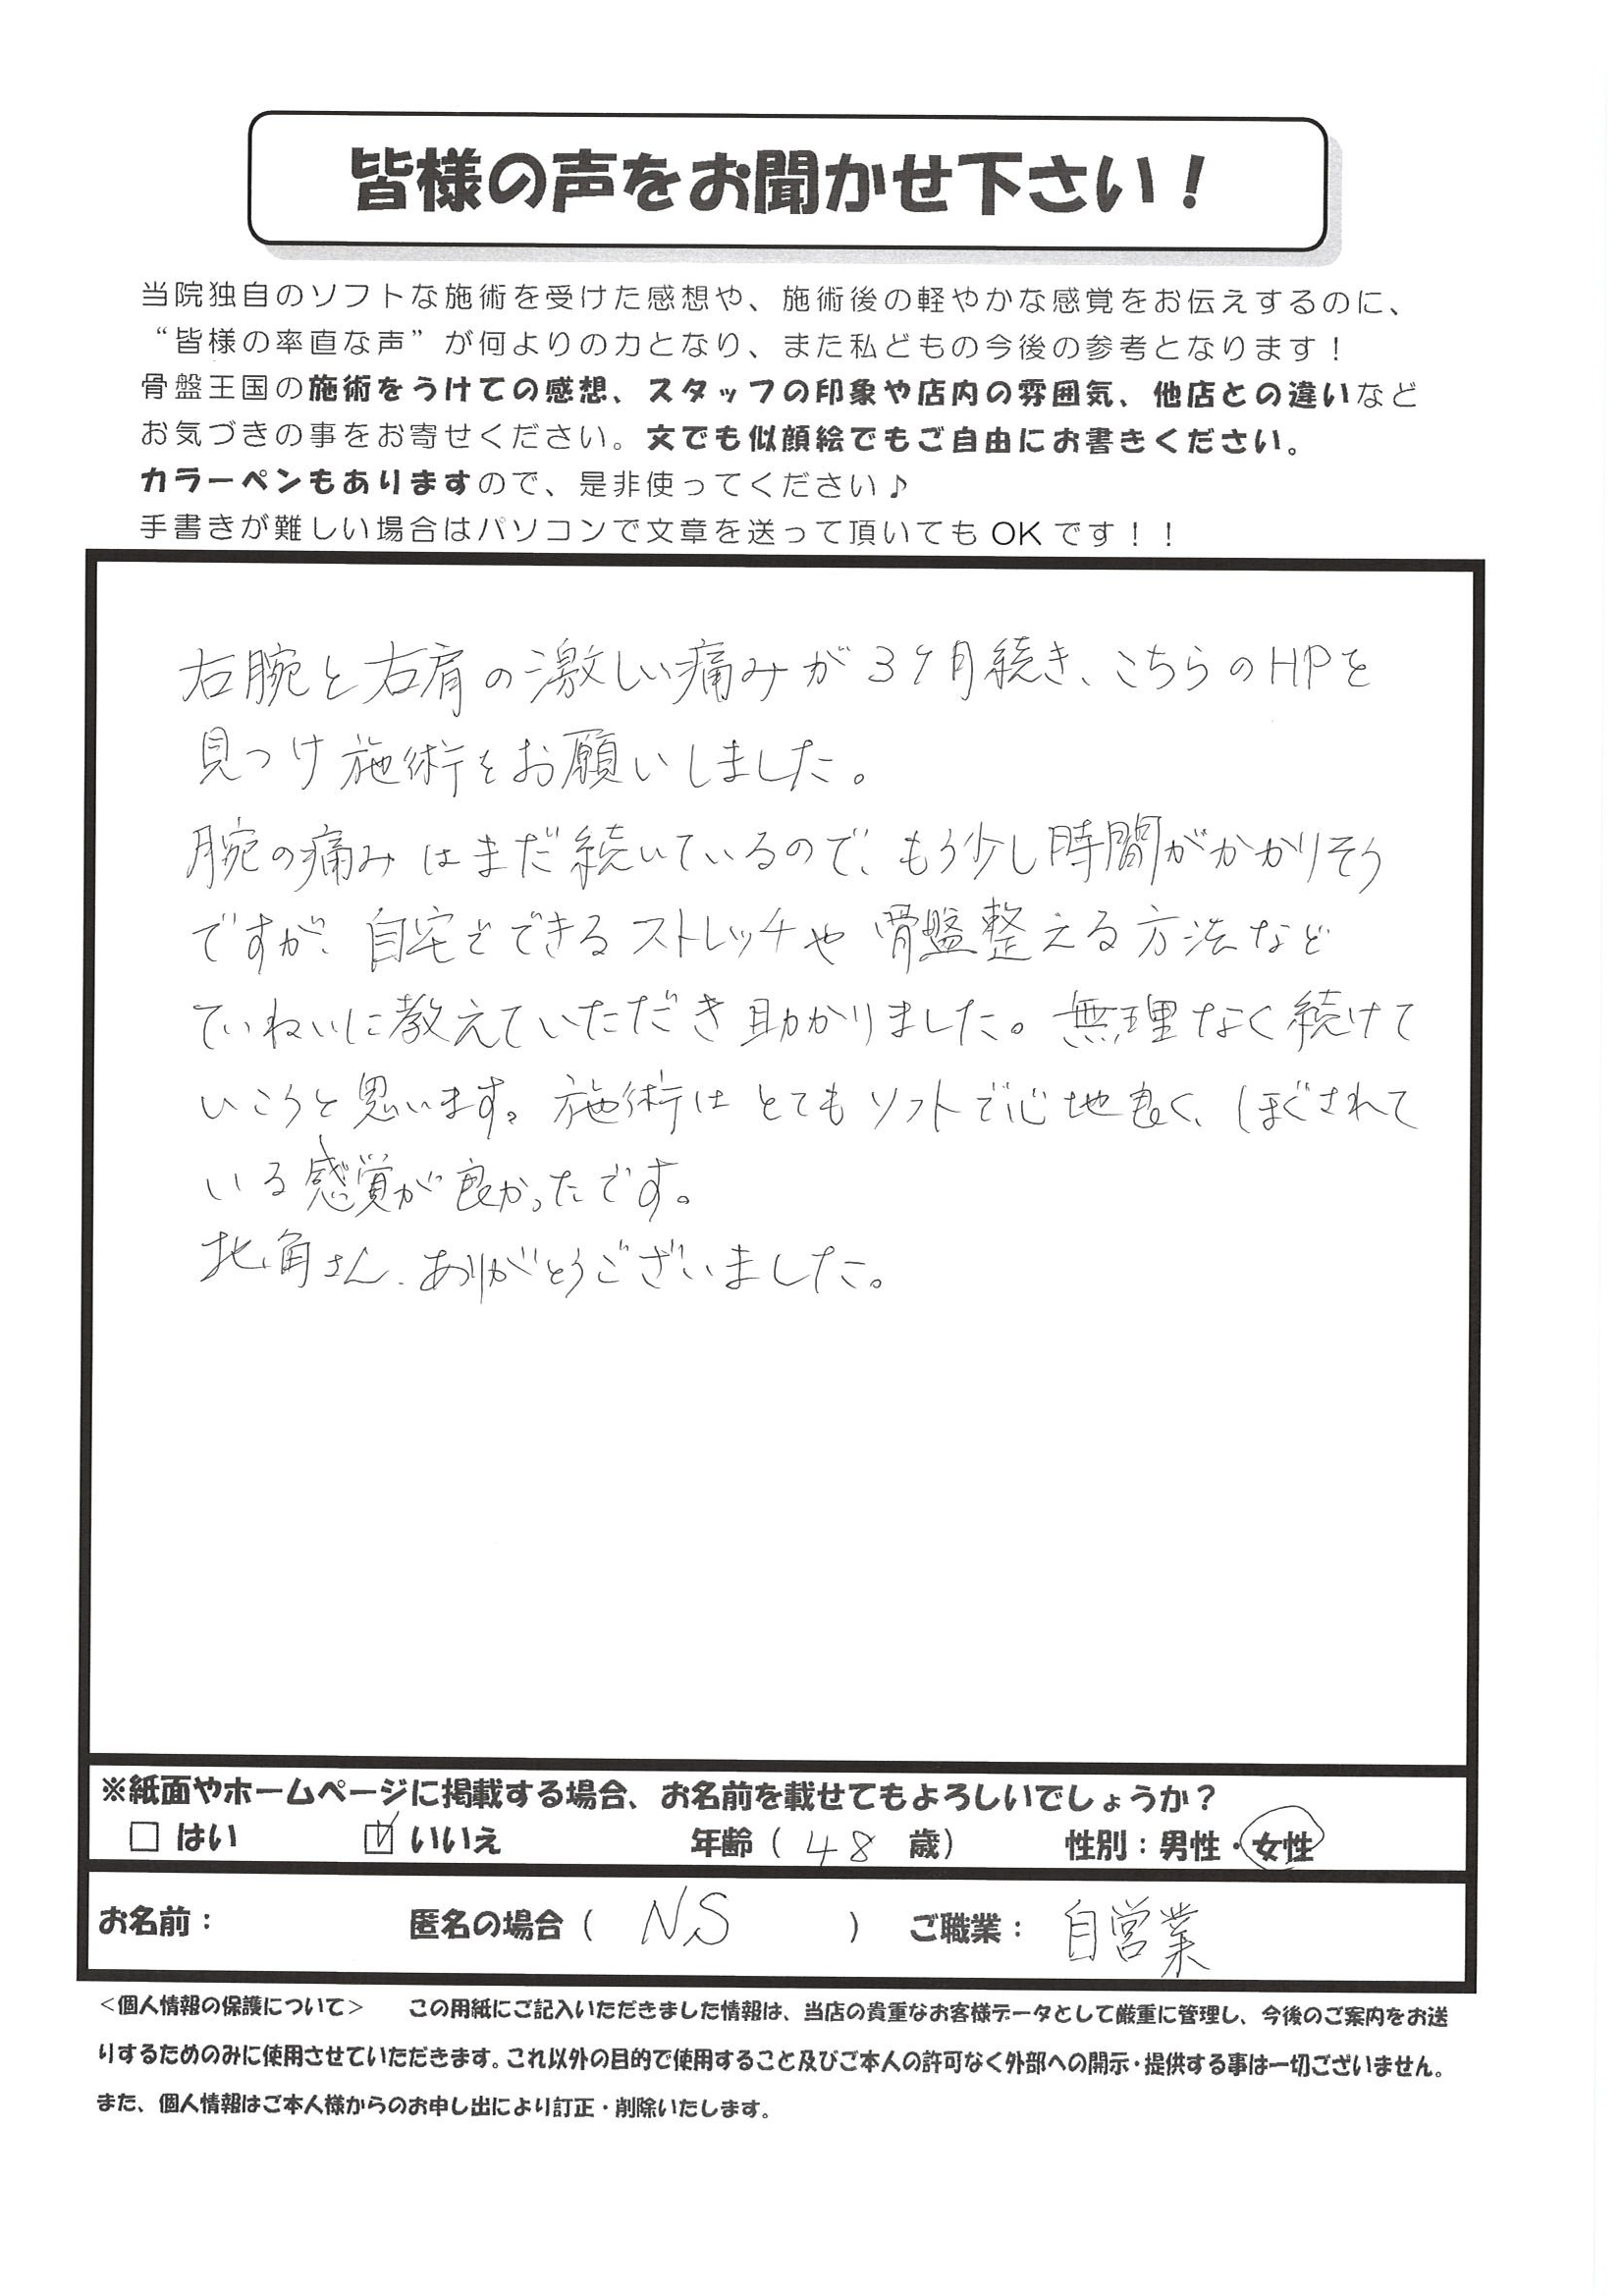 皆様の声をお聞かせ下さい！
当院独自のソフトな施術を受けた感想や、施術後の軽やかな感覚をお伝えするのに、
“皆様の率直な声”が何よりの力となり、また私どもの今後の参考となります！
骨盤王国の施術をうけての感想、スタッフの印象や店内の雰囲気、他店との違いなど
お気づきの事をお寄せください。文でも似顔絵でもご自由にお書きください。
カラーペンもありますので、是非使ってください♪
手書きが難しい場合はパソコンで文章を送って頂いてもOKです！！
右腕と右肩の激しい痛みが3ヶ月続き、こちらのHPを
見つけ施術をお願いしました。
腕の痛みはまだ続いているので、もう少し時間がかかりそう
ですが、自宅でできるストレッチや骨盤整える方法など
ていねいに教えていただき助かりました。無理なく続けて
いこうと思います。施術はとてもソフトで心地良く、ほぐされて
いる感覚が良かったです。
北角さん、ありがとうございました。
※紙面やホームページに掲載する場合、お名前を載せてもよろしいでしょうか？
□ はい ☑ いいえ 年齢（ 48 歳） 性別：男性・女性
お名前： 匿名の場合（ NS ） ご職業： 自営業
＜個人情報の保護について＞ この用紙にご記入いただきました情報は、当店の貴重なお客様データとして厳重に管理し、今後のご案内をお送
りするためのみに使用させていただきます。これ以外の目的で使用すること及びご本人の許可なく外部への開示・提供する事は一切ございません。
また、個人情報はご本人様からのお申し出により訂正・削除いたします。